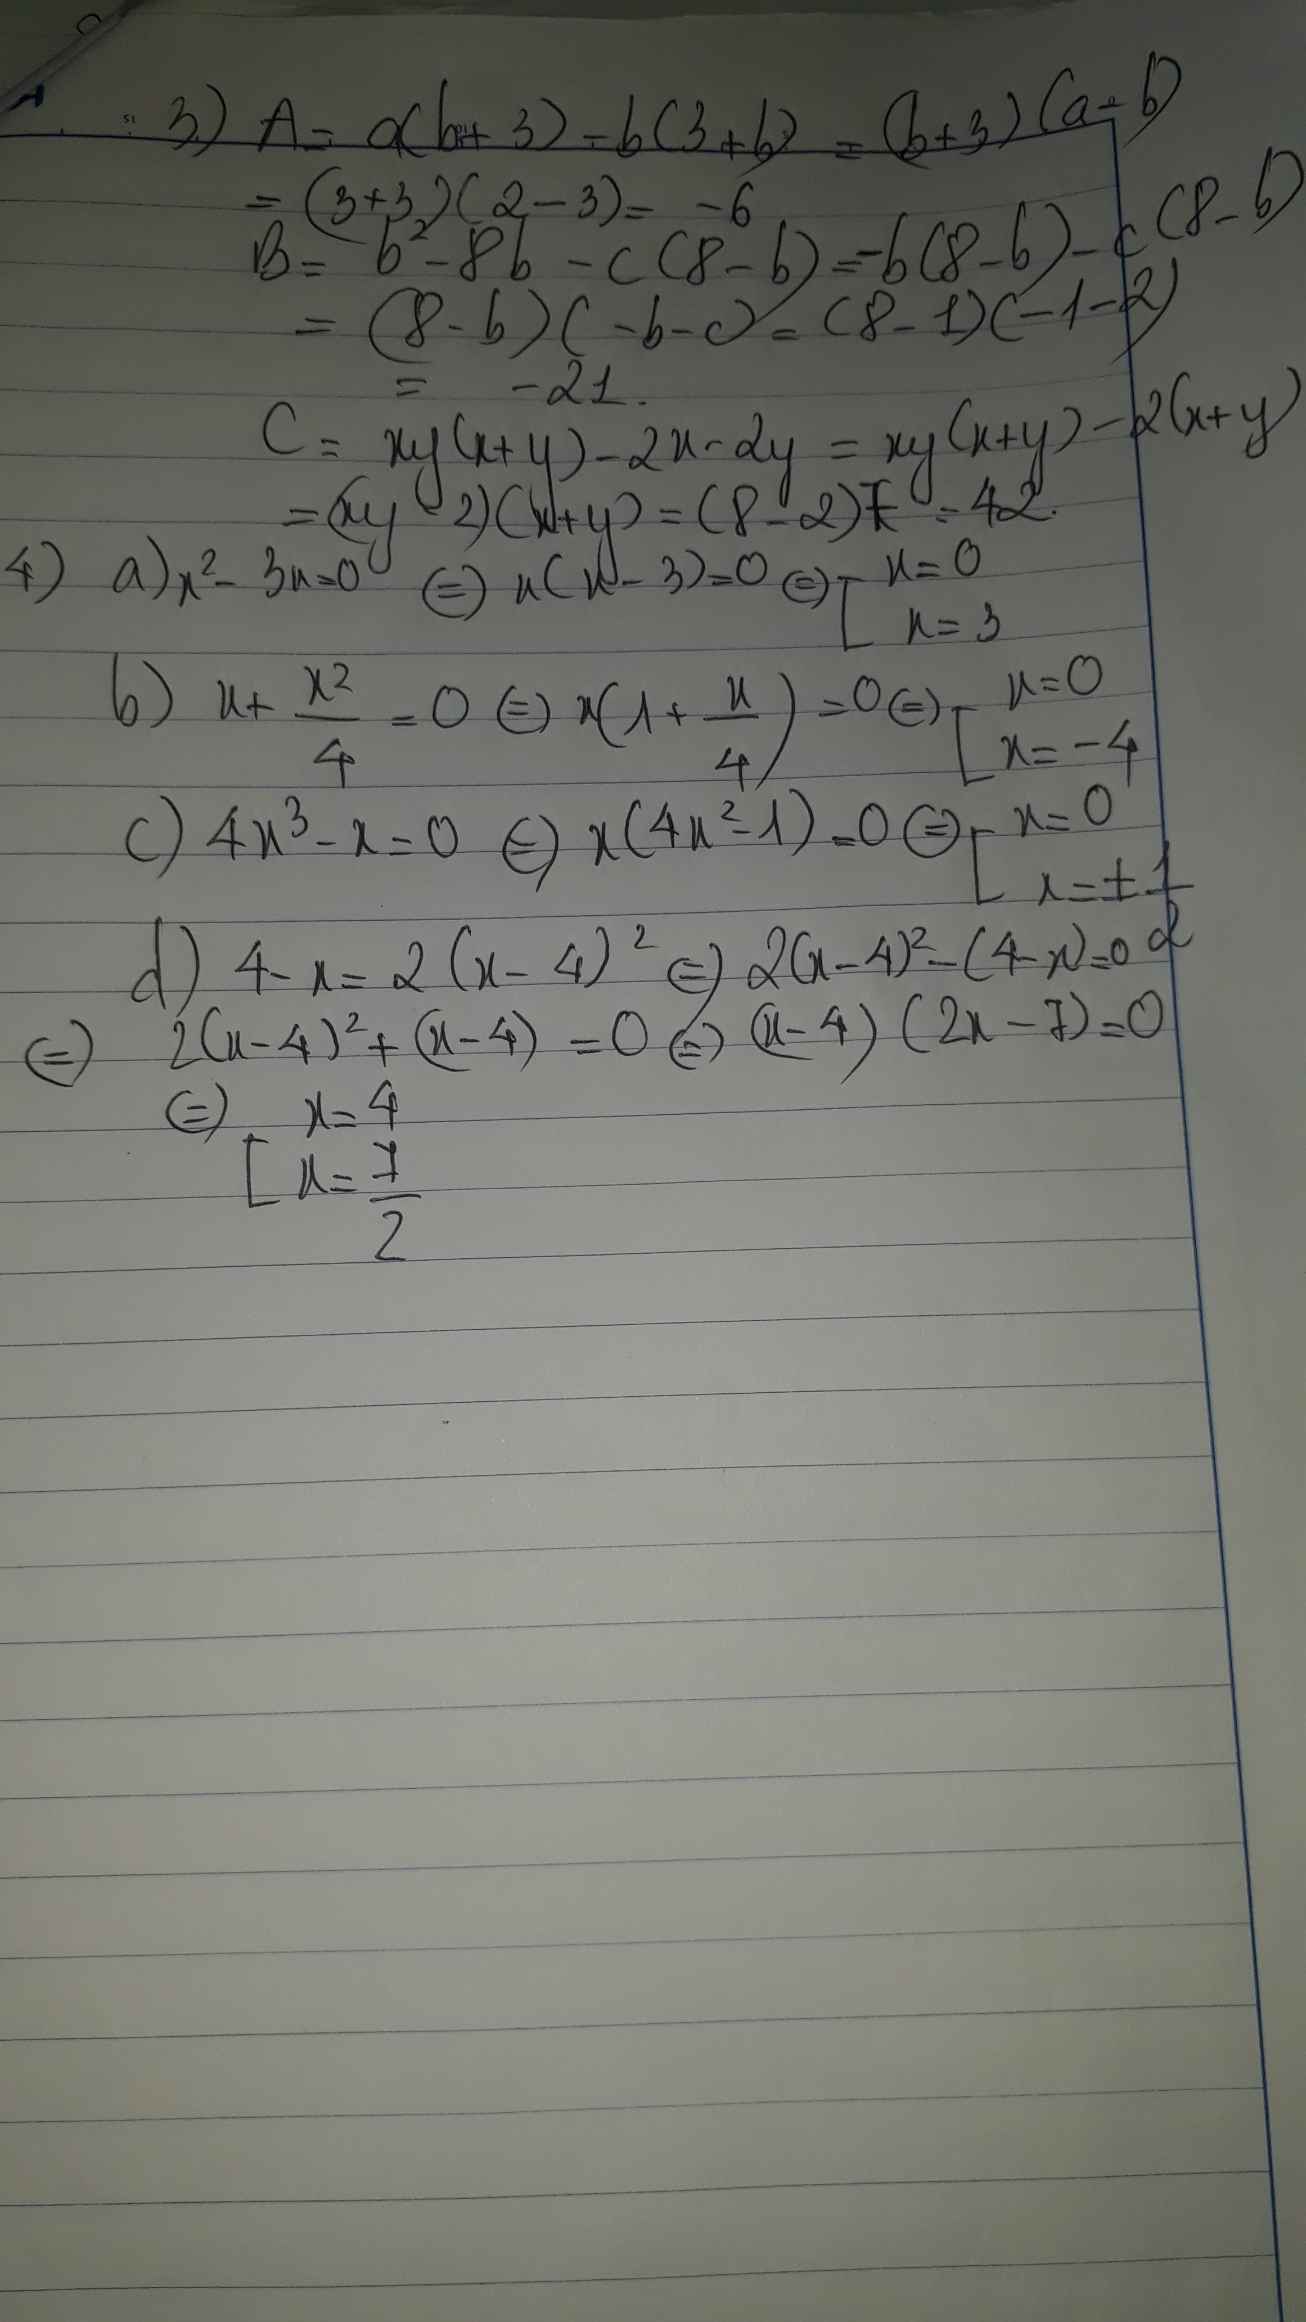 3) A = a(b+3) - b(3+b) = (b+3)(a-b)
= (3+3)(2-3) = -6
B = b² - 8b - c(8-b) = -b(8-b) - c(8-b)
= (8-b)(-b-c) = (8-1)(-1-2)
= -21.
C = xy(x+y) - 2x - 2y = xy(x+y) - 2(x+y)
= (xy - 2)(x+y) = (8-2)7 = 42.
4) a) x² - 3x = 0 ⇔ x(x-3) = 0 ⇔ [ x = 0
x = 3
b) x + x²/4 = 0 ⇔ x(1 + x/4) = 0 ⇔ [ x = 0
x = -4
c) 4x³ - x = 0 ⇔ x(4x² - 1) = 0 ⇔ [ x = 0
x = ± 1/2
d) 4 - x = 2(x-4)² ⇔ 2(x-4)² - (4-x) = 0
⇔ 2(x-4)² + (x-4) = 0 ⇔ (x-4)(2x-7) = 0
⇔ [ x = 4
x = 7/2